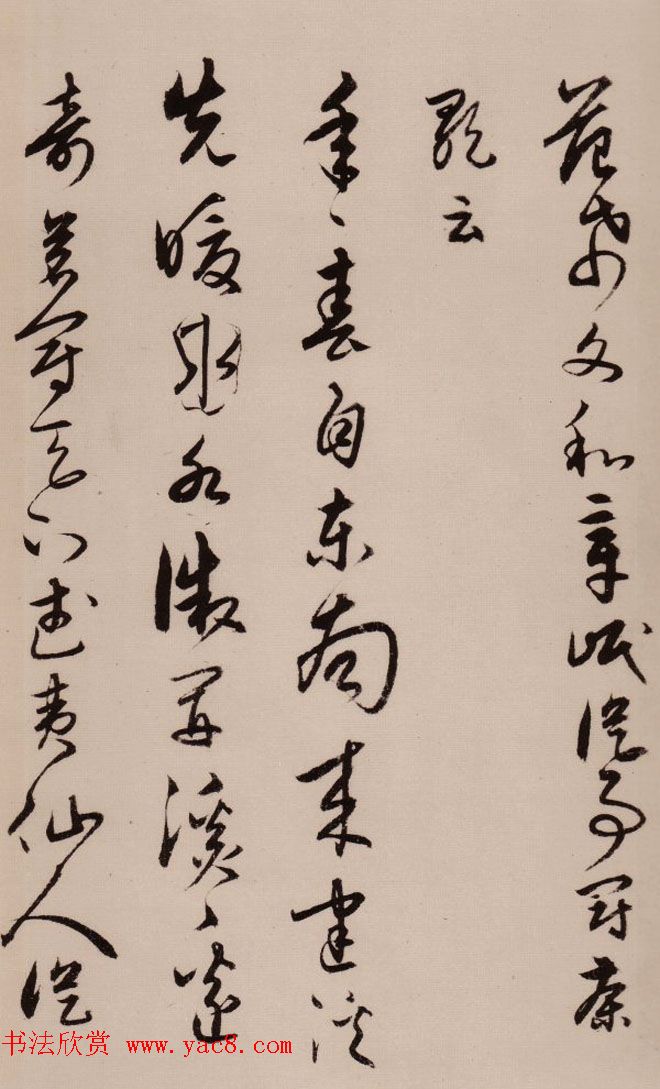 范希文和章岷從事鬥茶
歌云
年々春自東南來建溪
先暖冰微開溪々邊
奇茗冠天下武夷仙人從
书法欣赏 www.yac8.com